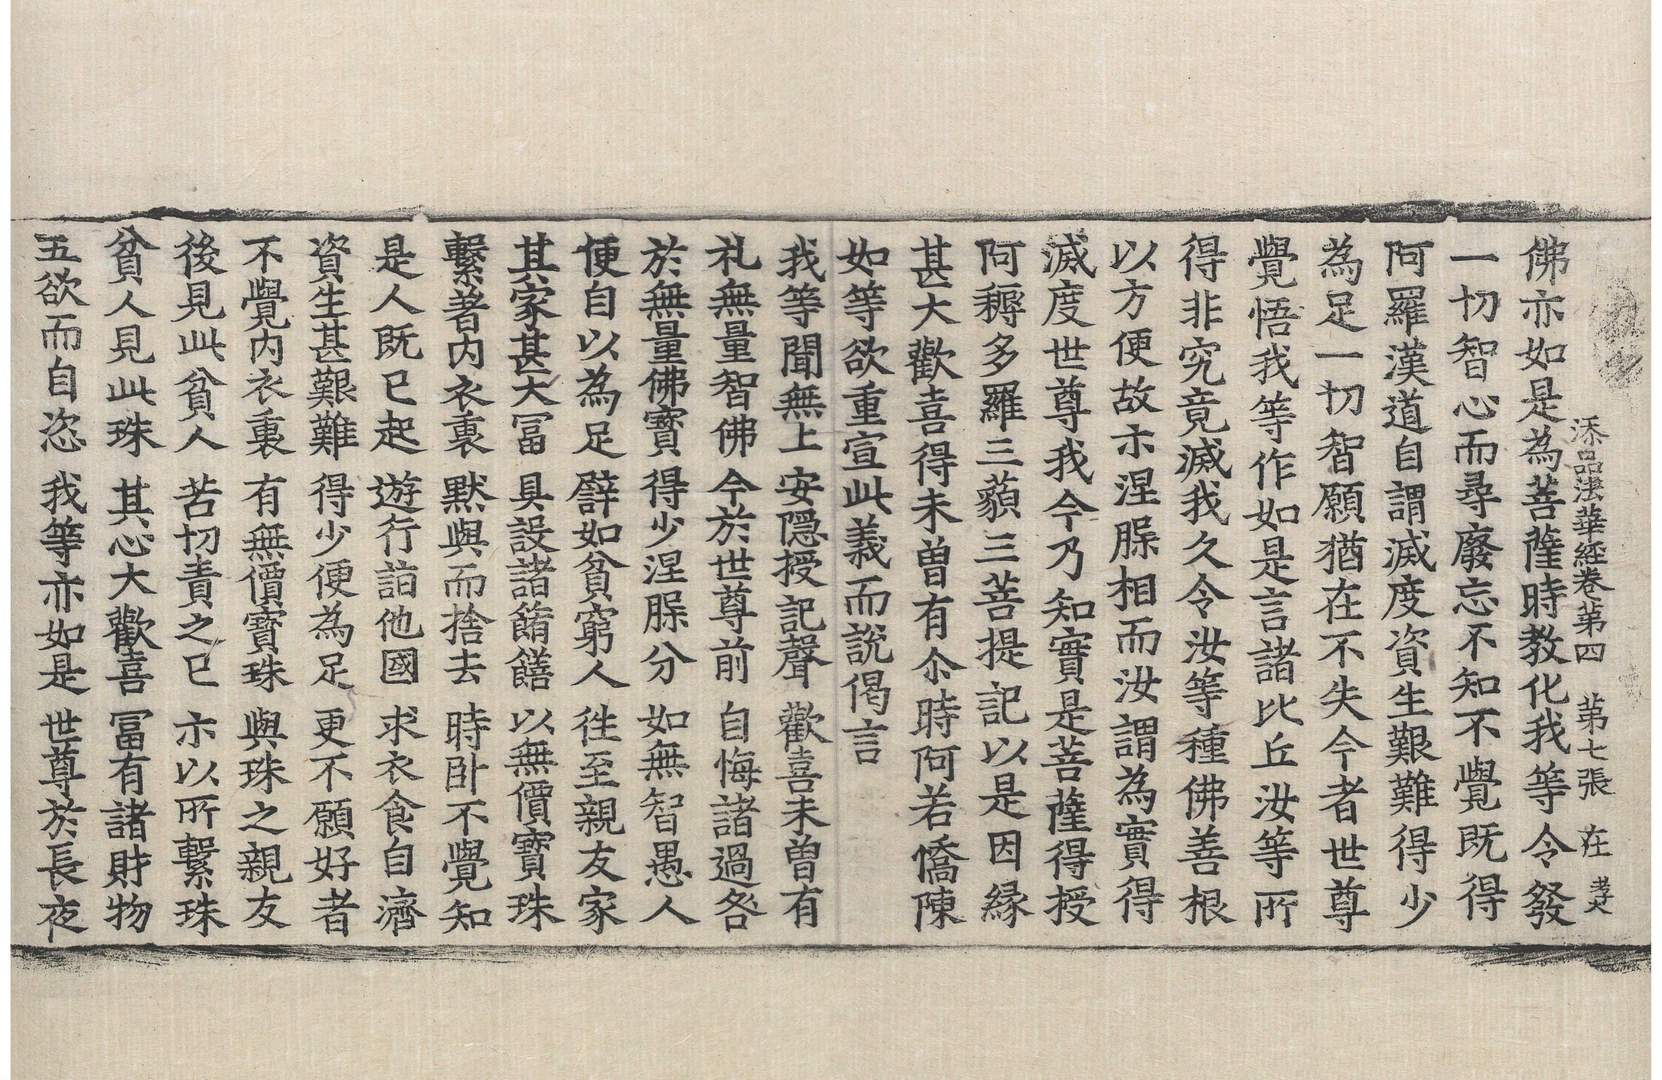 添品法華經卷第四 第七張 在
佛亦如是為菩薩時教化我等令發
一切智心而尋廢忘不知不覺既得
阿羅漢道自謂滅度資生艱難得少
為足一切智願猶在不失今者世尊
覺悟我等作如是言諸比丘汝等所
得非究竟滅我久令汝等種佛善根
以方便故示涅槃相而汝謂為實得
滅度世尊我今乃知實是菩薩得授
阿耨多羅三藐三菩提記以是因緣
甚大歡喜得未曽有尒時阿若憍陳
如等欲重宣此義而說偈言
我等聞無上 安隱授記聲 歡喜未曽有
礼無量智佛 今於世尊前 自悔諸過咎
於無量佛寶 得少涅槃分 如無智愚人
便自以為足 譬如貧窮人 徃至親友家
其家甚大冨 具設諸餚饍 以無價寶珠
繫著內衣裏 默與而捨去 時卧不覺知
是人既已起 遊行詣他國 求衣食自濟
資生甚艱難 得少便為足 更不願好者
不覺內衣裏 有無價寶珠 與珠之親友
後見此貧人 苦切責之已 示以所繫珠
貧人見此珠 其心大歡喜 冨有諸財物
五欲而自恣 我等亦如是 世尊於長夜